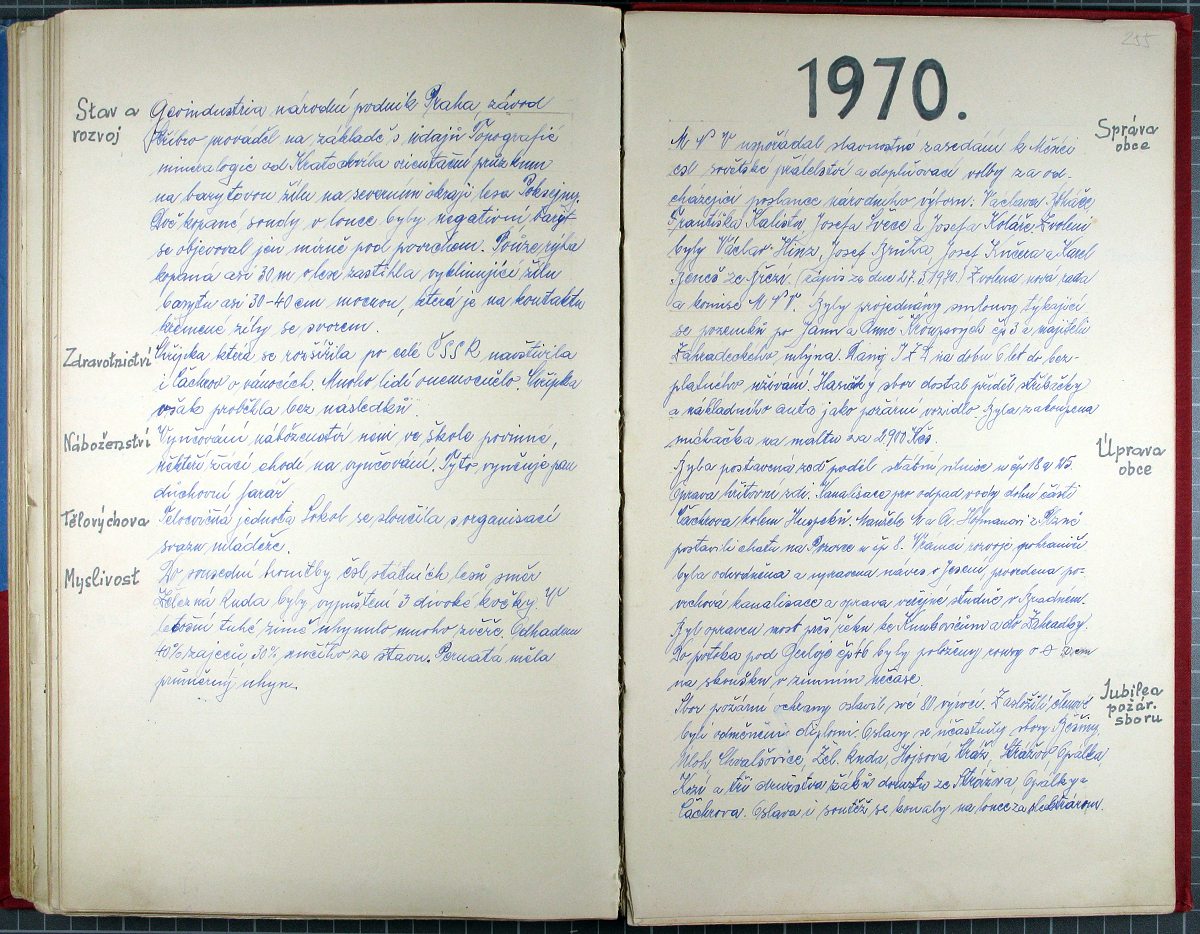 Stav a
rozvoj
Geoindustria národní podnik Praha závod
Stříbro prováděl na základě s údajů Topografic
mineralogic od Kratochvíla orientační průzkum
na barytovou žílu na severním okraji lesa
kopané sondy v lomce byly negativní baryt
se objevoval jen mírně pod povrchem. Pouze rýha
kopaná asi 30 m v lese zastihla vykliňující žílu
barytu asi 30-40 cm mocnou, která je na kontaktu
křemené žíly se svorem.
Zdravotnictví
Chřipka která se rozšířila po celé ČSSR navštívila
i Čachrov o vánocích. Mnoho lidí onemocnělo. Chřipka
však proběhla bez následků.
Náboženství
Vyučování náboženství není ve škole povinné,
někteří žáci chodí na vyučování. Tyto vyučuje pan
důchovní farář.
Tělovýchova
Tělocvičná jednota Sokol se sloučila s organisací
svazu mládeže.
Myslivost
Do sousední honitby čsl. státních lesů směr
Železná Ruda byly vypuštění 3 divoké kočky. V
letošní tuhé zimě uhynulo mnoho zvěře. Odhadem
40% zajeců 30% srnčího ze stavu. Pernatá měla
průměrný uhyn.
255
1970.
Správa
obce
M N V uspořádal slavnostné zasedání k Měsíci
čsl sovětske přátelství a doplňovací volby za od-
cházející poslance národního výboru: Václava
Františka Kalista, Josefa Švece a Josefa Koláře. Zvoleni
byly Václav Hinz, Josef Brůha, Josef Kučera a Karel
Beneš ze Březí. (Zápis ze dne 27.5.1970.) Zvolena nová rada
a komise M.N.V. Byly projednány smlouvy týkající
se pozemků po Janu a Anně Krouparových čp 3 a majiteli
Zahradeckého mlýna. Raný J Z D na dobu 6 let do bez-
platného užívání. Hasičky sbor dostal příděl stříkačky
a nákladního auta jako požární vozidlo. Byla zakoupena
míchačka na maltu za 2.900 Kčs.
Úprava
obce
Byla postavená zeď podél státní silnice u čp 18 a 25.
Oprava hřbitovní zdi. Kanalisace pro odpad. vody dolní části
Čachrova kolem. Manželé M a A. Hofmanovi z Plzně
postavili chatu na u čp 8. Vrámci rozvoje pohraničí
byla odvodněna a upravena náves v Jesení, provedena po-
vrchová kanalisace a oprava veřejne studně v Bradnem.
Byl opraven most přes řeku ke a do Zahrádky.
Do potoka pod čp 46 byly položeny roury o ø cm
na skoušku v zimním nečase
Jubilea
požár.
sboru
Sbor požární ochrany oslavil své 80 výročí. Zasloužilí členové
byli odměněni diplomi. Oslavy se účastnily sbory Běšiny,
Úloh, Chvalšovice, Žel. Ruda, Hojsová Stráž, Strážov, Opálka
Kozí a tři družstva žáků dorostu ze Strážova, Opálky a
Čachrova. Oslava i soutěž se konaly na louce za